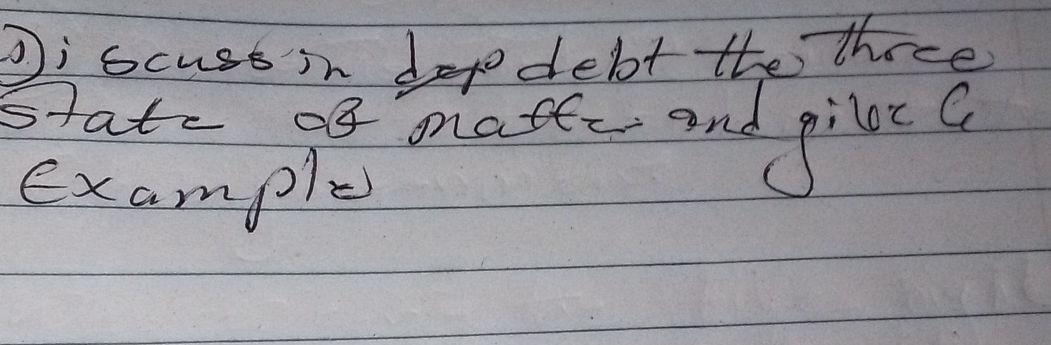 Discuss in dep debt the three
state of matte and give 6
Example